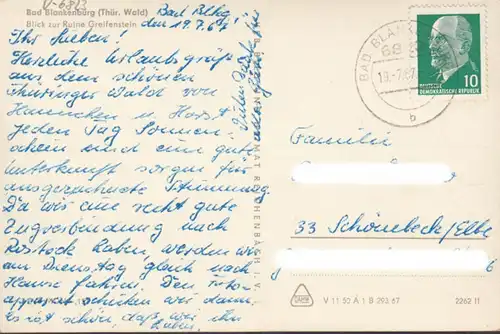 V-6813
Bad Blankenburg (Thür. Wald)
Blick zur Ruine Greifenstein
Bad Blkbg.
den 19.7.67
Ihr Lieben!
Herzliche Urlaubsgrüße
aus dem schönen
Thüringer Wald von
Hannchen u. Horst
jeden Tag Sonnen-
schein und eine gute
Unterkunft sorgen für
ausgezeichnete Stimmung.
Da wir eine recht gute
Zugverbindung nach
Rostock haben, werden wir
am Dienstag gleich nach
Hause fahren. Den
apparat schicken wir dann,
es ist schön, daß wir ihn
haben.
BAD BLANKENBURG
68
19.-7.67
b
DEUTSCHE
DEMOKRATISCHE REPUBLIK
10
Familie
33 Schönebeck/Elbe
V 11 50 A 1 B 293 67
2262 II